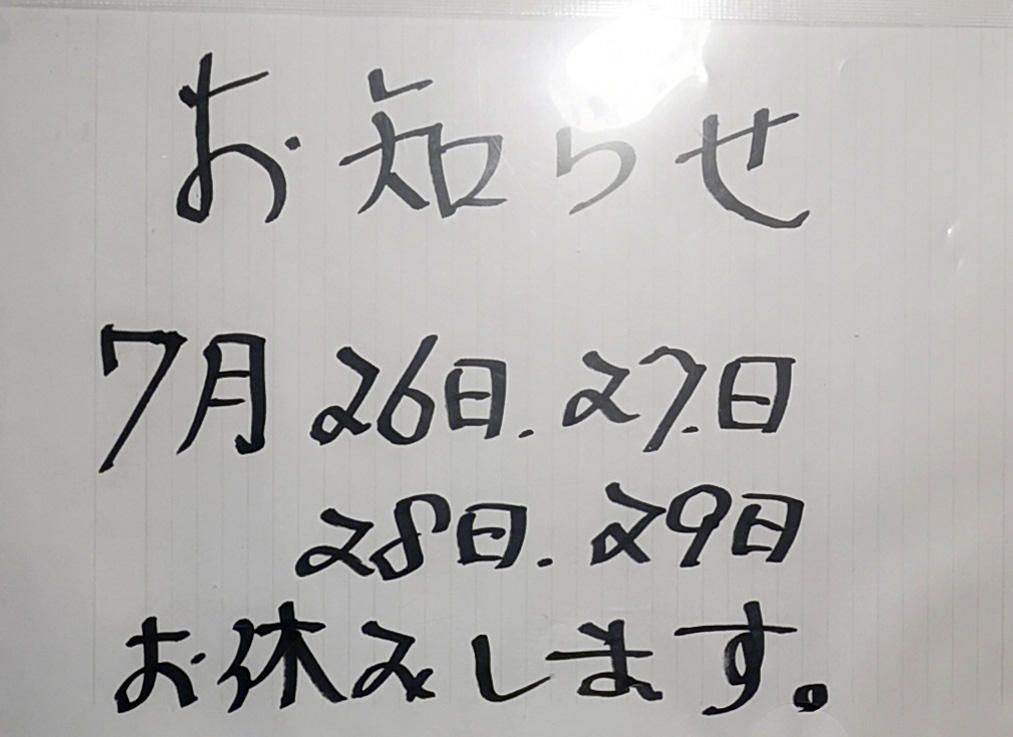 お知らせ
7月26日.27日
28日.29日
お休みします。